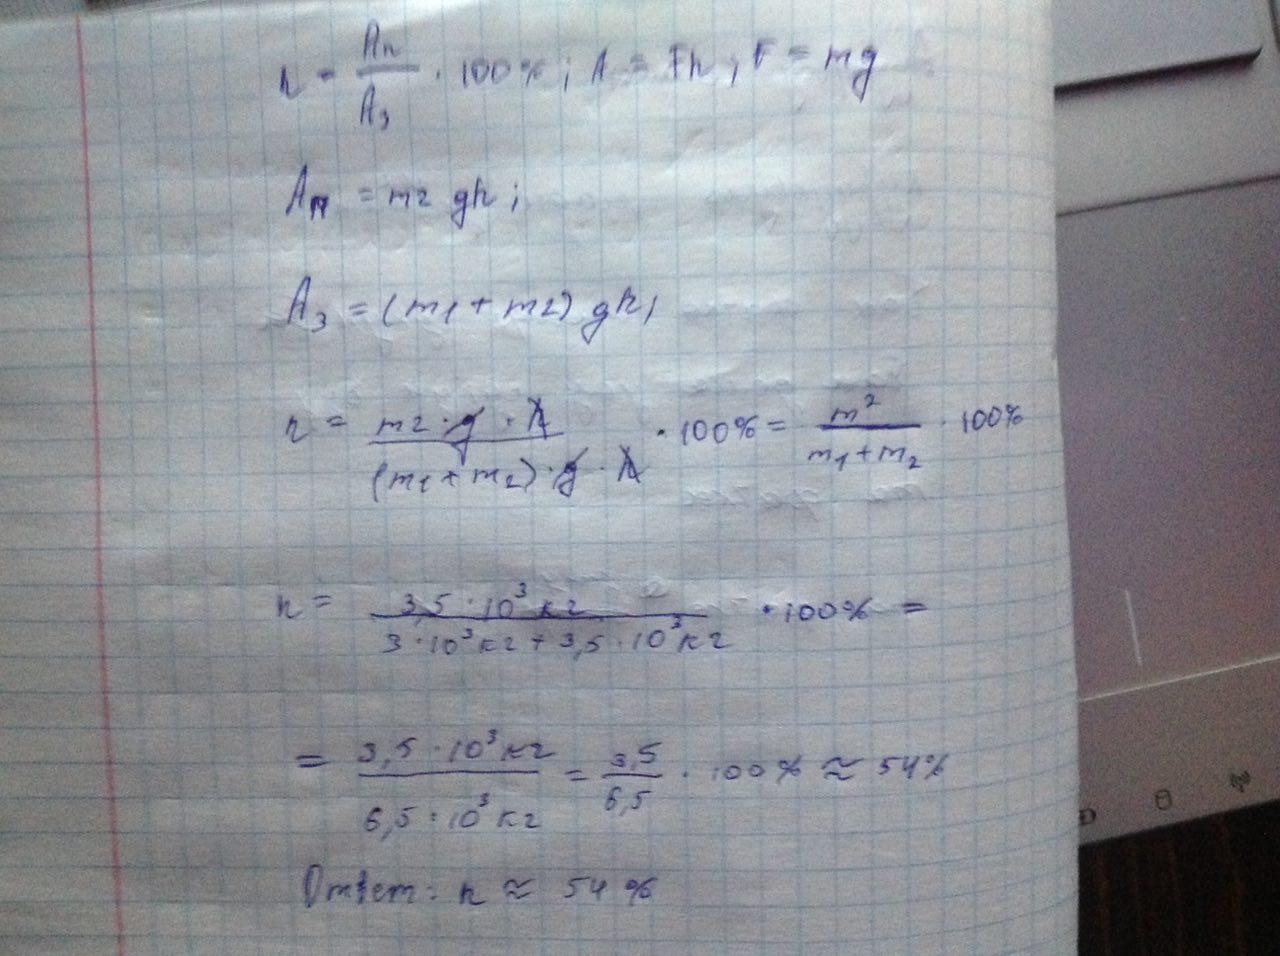 η = Aп/Aз · 100%; A = Fh; F = mg
Aп = m2 gh;
Aз = (m1 + m2) gh,
η = m2 · g · h/(m1 + m2) · g · h · 100% = m²/m₁ + m₂ · 100%
η = 3,5 · 10³ кг/3 · 10³ кг + 3,5 · 10³ кг · 100% =
= 3,5 · 10³ кг/6,5 · 10³ кг = 3,5/6,5 · 100% ≈ 54%
Ответ: η ≈ 54%